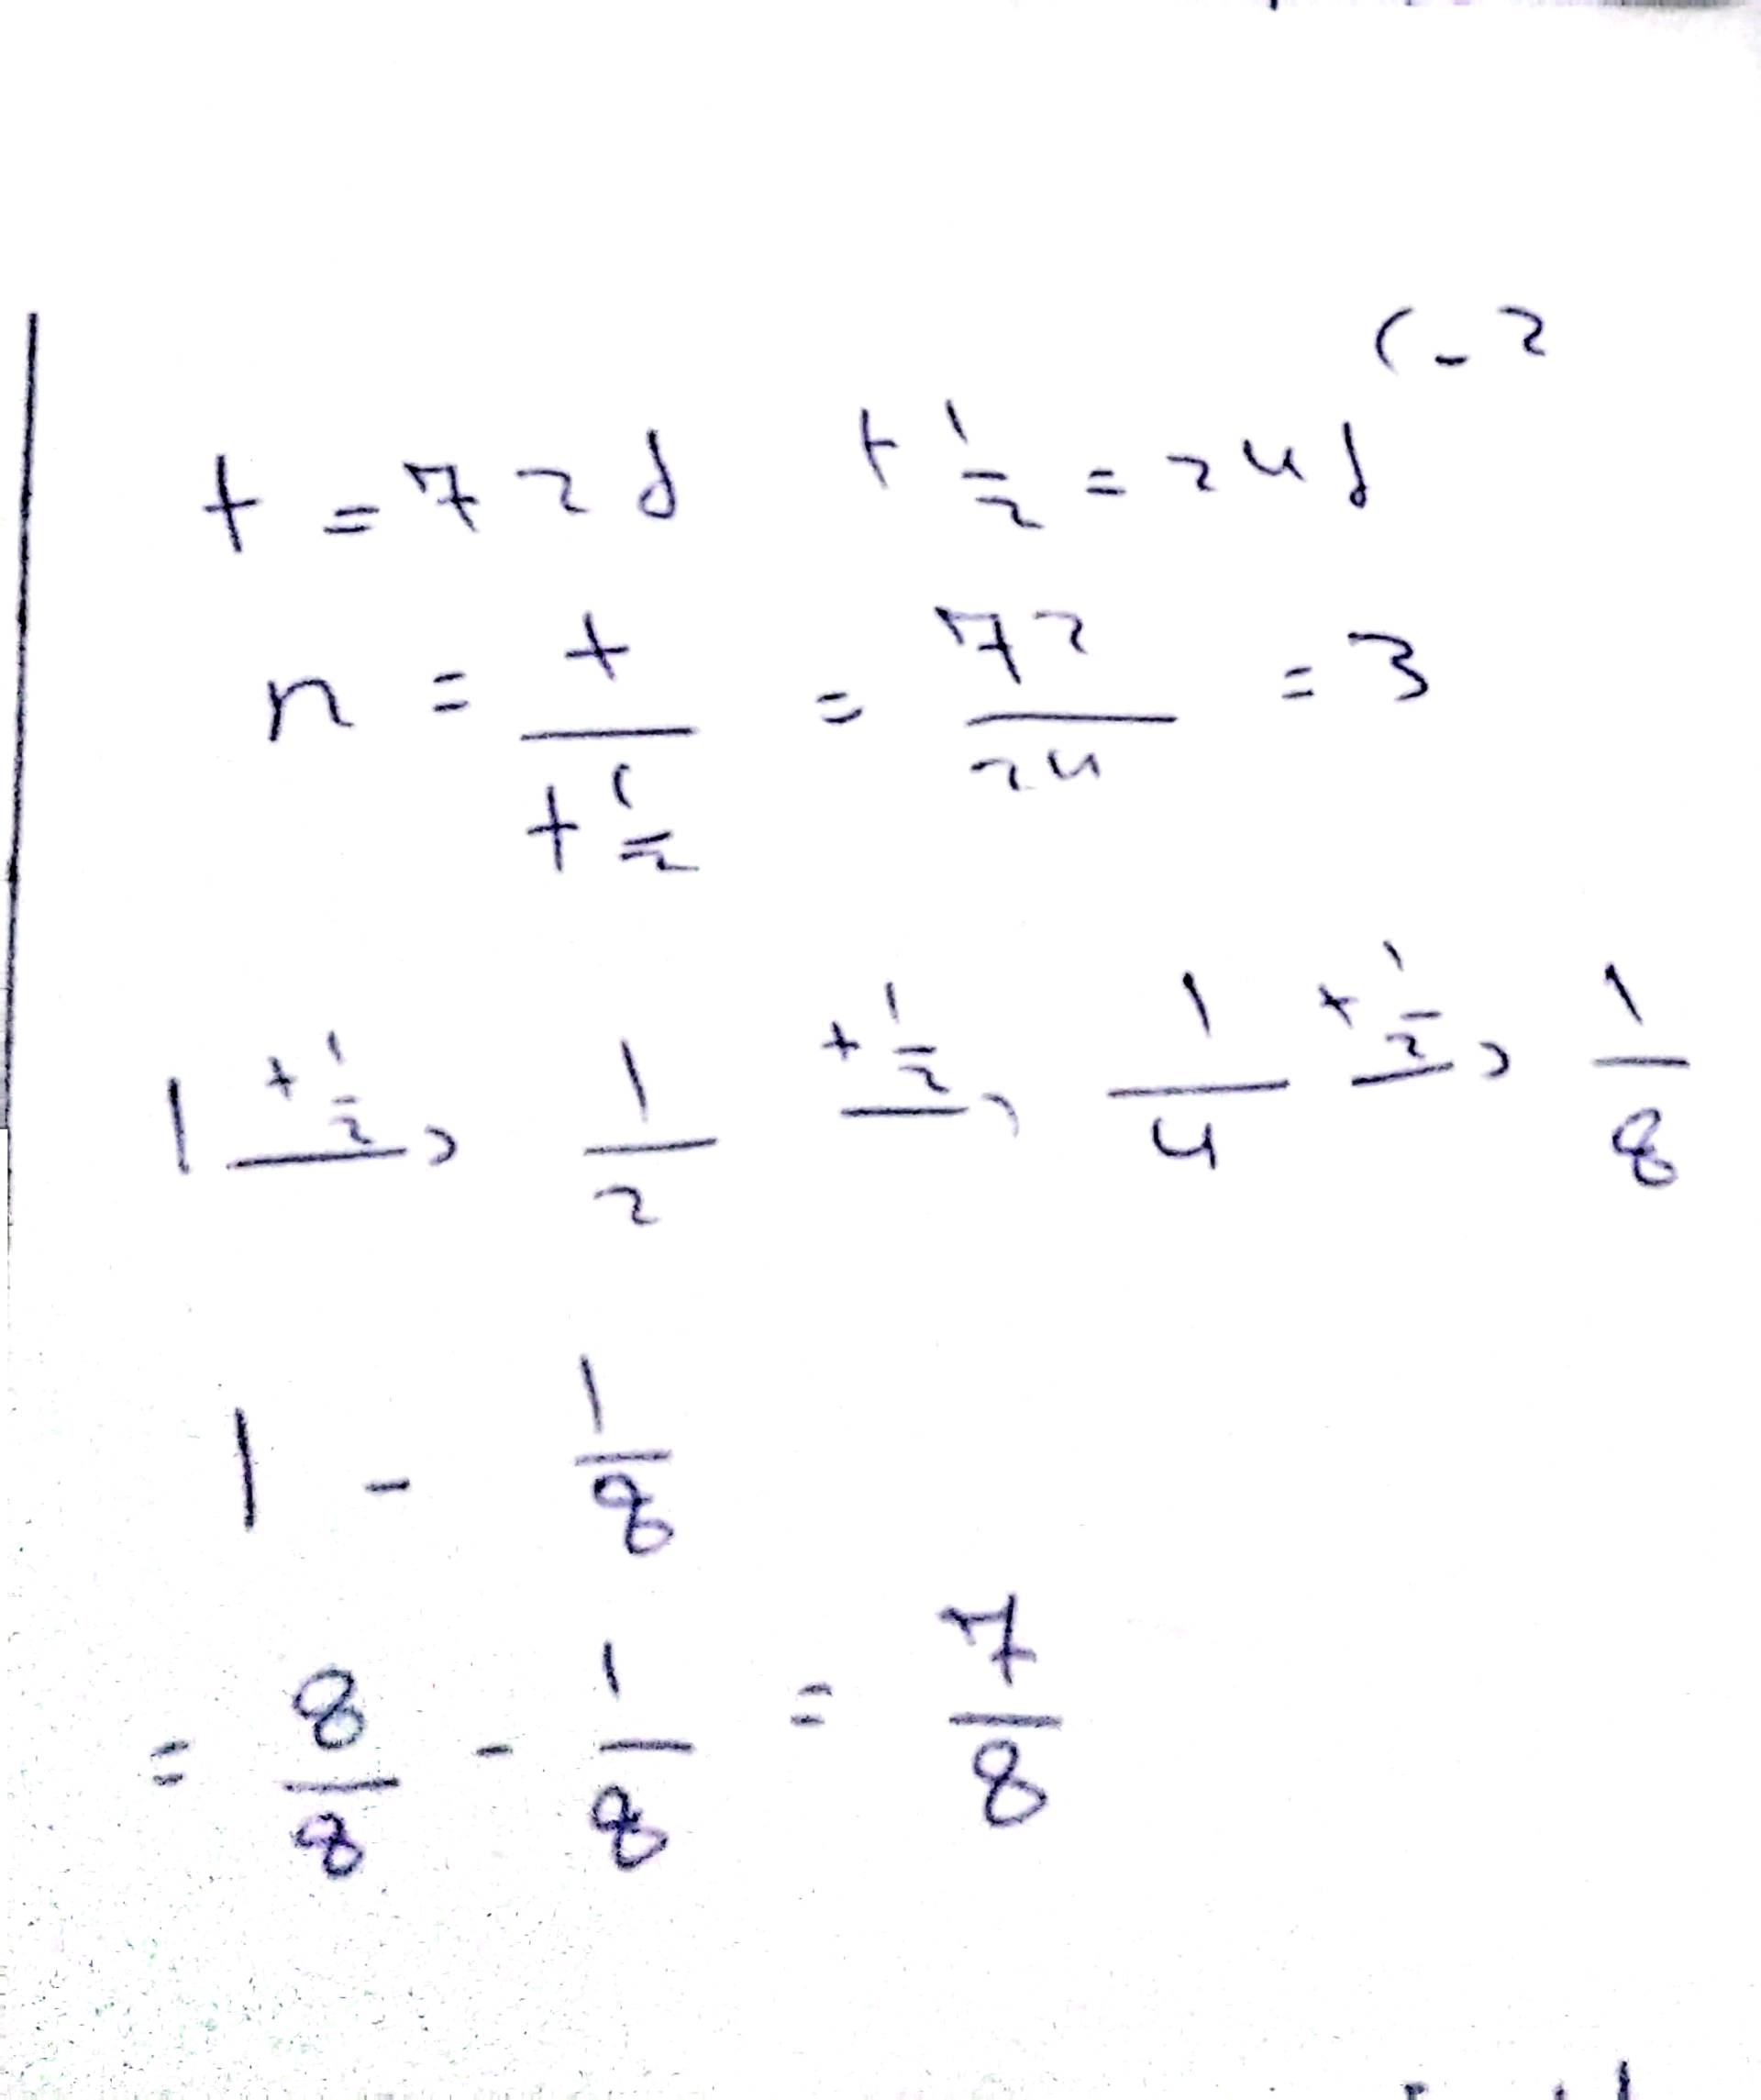 (-2
t = 72d t 1/2 = 24d
n = t / t 1/2 = 72/24 = 3
1 —t 1/2→ 1/2 —t 1/2→ 1/4 —t 1/2→ 1/8
1 - 1/8
= 8/8 - 1/8 = 7/8